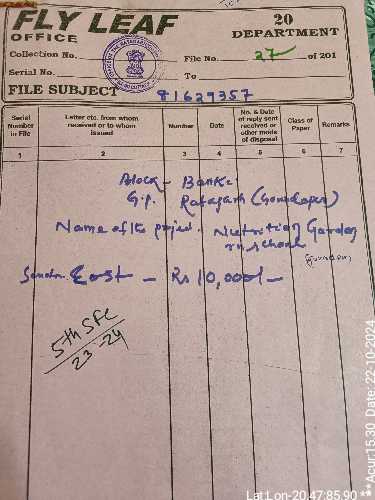 FLY LEAF
20
OFFICE
DEPARTMENT
Collection No.
File No. 27 of 201
Serial No.
To
FILE SUBJECT 81629357
Serial Number in File
Letter etc. from whom received or to whom issued
Number
Date
No. & Date of reply sent received or other mode of disposal
Class of Paper
Remarks
1 2 3 4 5 6 7
Block - Banki
G.P. Ratagarh (Gourdapur)
Name of the project. Nutrition Garden
in school
Cost - Rs 10,000/-
5th SFC
23-24
Lat:Lon-20.47:85.90 *** Acur:15.30 Date: 22-10-2024